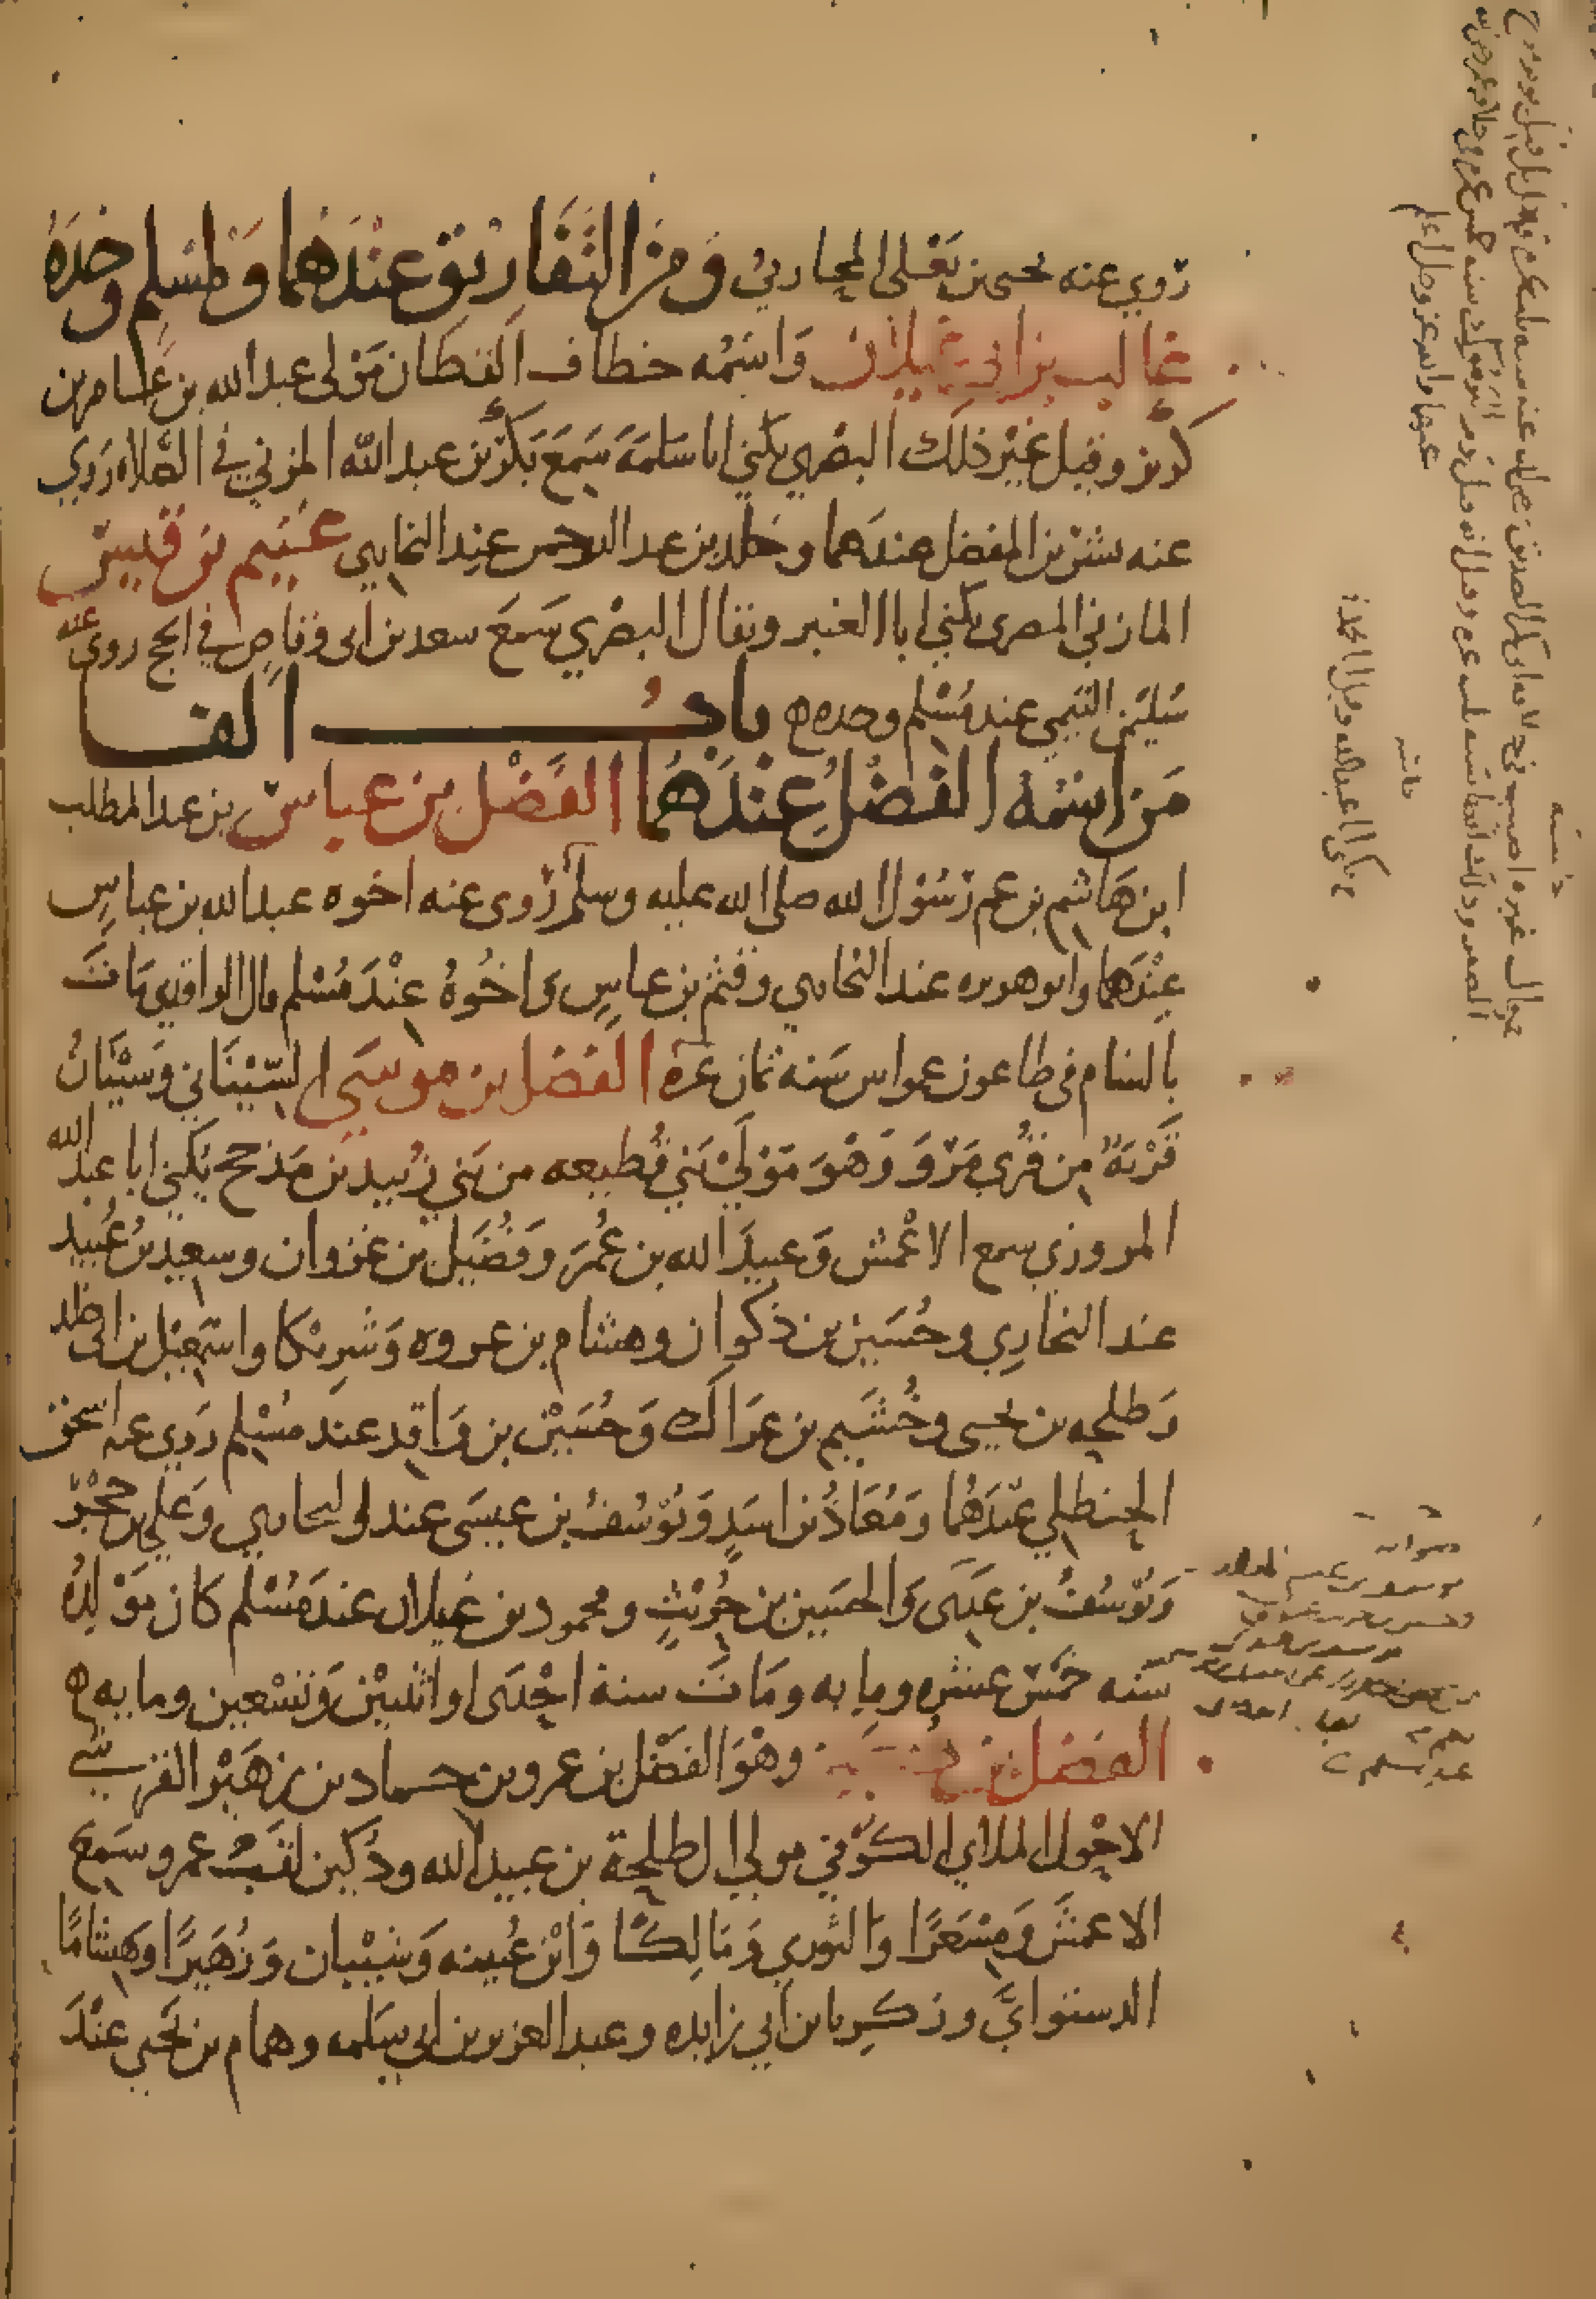 روي عنه يحيى بن يعلى المحاربي ومن التفاريق عندهما ومسلم وحده
غالب بن ابي غيلان واسمه خطاف القطان مولى عبد الله بن عامر بن
كريز وقيل غير ذلك البصري يكنى ابا سلمة سمع بكر بن عبد الله المزني في الصلاة روي
عنه بشر بن المفضل عندهما وخلد بن عبد الرحمن عند البخاري غنيم بن قيس
المازني البصري يكنى ابا العنبر ويقال البصري سمع سعد بن ابي وقاص في الحج روى عنه
سليمن التيمي عند مسلم وحده ه باب الفا
من اسمه الفضل عندهما الفضل بن عباس بن عبد المطلب
ابن هاشم بن عم رسول الله صلى الله عليه وسلم روى عنه اخوه عبد الله بن عباس
عندهما وابو هريره عند البخاري وقثم بن عباس واخوه عند مسلم قال الواقدي مات
بالشام في طاعون عمواس سنه ثمان عشرة الفضل بن موسى السيناني وسينان
قرية من قرى مرو وهو مولى بني قطيعه من بني زبيد بن مذحج يكنى ابا عبد الله
المروزي سمع الاعمش وعبيد الله بن عمر وفضيل بن غزوان وسعيد بن عبيد
عند البخاري وحسين بن ذكوان وهشام بن عروه وشريكا واسمعيل بن ابي خلد
وطلحه بن يحيى وخثيم بن عراك وحسين بن واقد عند مسلم روى عنه اسحق
الحنظلي عندهما ومعاذ بن اسد ويوسف بن عيسى عند البخاري وعلي بن حجر
ويوسف بن عيسى والحسين بن حريث ومحمود بن غيلان عند مسلم كان مولده
سنه خمس عشره ومايه ومات سنة احدى او اثنين وتسعين ومايه ه
الفضل بن دكين وهو الفضل بن عمرو بن حماد بن زهير القرشي
الاحول الملاي الكوفي مولى ال طلحة بن عبيد الله ودكين لقب عمرو سمع
الاعمش ومسعرا والثوري ومالكا وابن عيينه وشيبان وزهيرا وهشاما
الدستوايّ وزكريا بن ابي زايده وعبد العزيز بن ابي سلمه وهمام بن يحيى عند